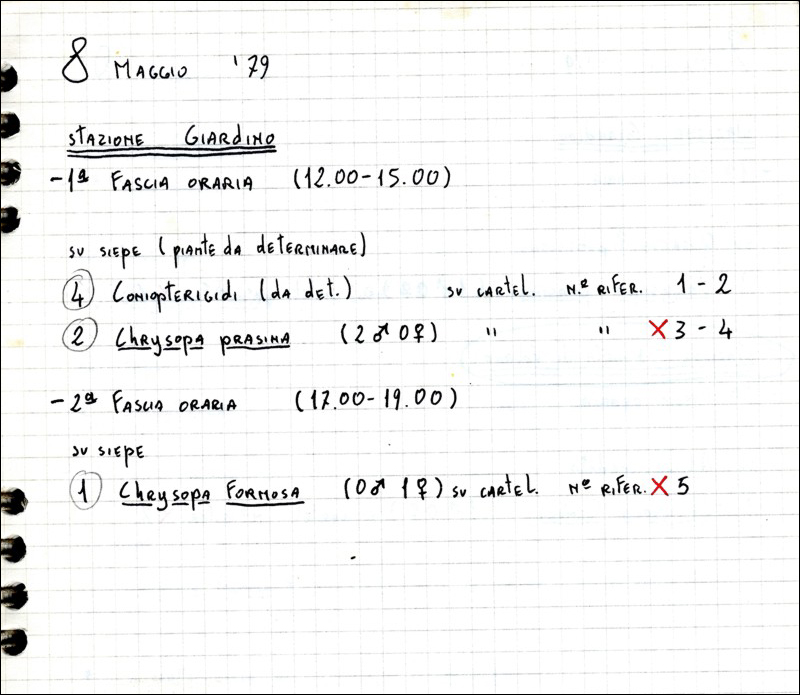 8 MAGGIO '79
STAZIONE GIARDINO
-1ª FASCIA ORARIA (12.00-15.00)
SU SIEPE (PIANTE DA DETERMINARE)
4 CONIOPTERIGIDI (DA DET.) SU CARTEL. N.º RIFER. 1-2
2 CHRYSOPA PRASINA (2♂ 0♀) " " X 3-4
-2ª FASCIA ORARIA (17.00-19.00)
SU SIEPE
1 CHRYSOPA FORMOSA (0♂ 1♀) SU CARTEL. Nº RIFER. X 5